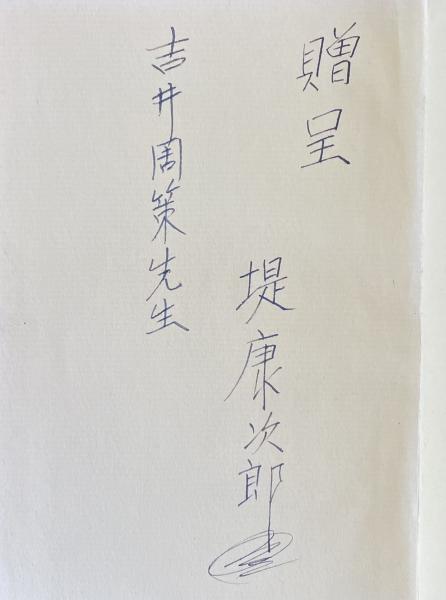 贈呈
堤康次郎
吉井周策先生